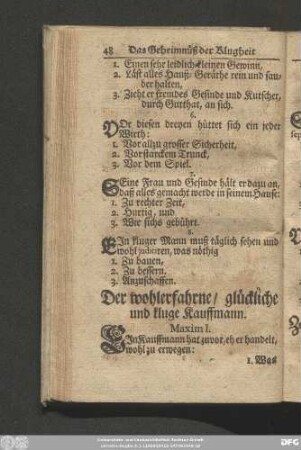 48 Das Geheimnüß der Klugheit
1. Einen sehr leidlich-kleinen Gewinn,
2. Läst alles Hauß-Geräthe rein und sau-
ber halten,
3. Zieht er fremdes Gesinde und Kutscher,
durch Gutthat, an sich.
6.
VOr diesen dreyen hüttet sich ein jeder
Wirth:
1. Vor allzu grosser Sicherheit,
2. Vor starckem Trunck,
3. Vor dem Spiel.
7.
SEine Frau und Gesinde hält er dazu an,
daß alles gemacht werde in seinem Hause:
1. Zu rechter Zeit,
2. Hurtig, und
3. Wie sichs gebührt.
8.
EIn kluger Mann muß täglich sehen und
wohl judiciren, was nöthig
1. Zu bauen,
2. Zu bessern,
3. Anzuschaffen.
Der wohlerfahrne / glückliche
und kluge Kauffmann.
Maxim I.
EIn Kauffmann hat zuvor, eh er handelt,
wohl zu erwegen:
1. Was